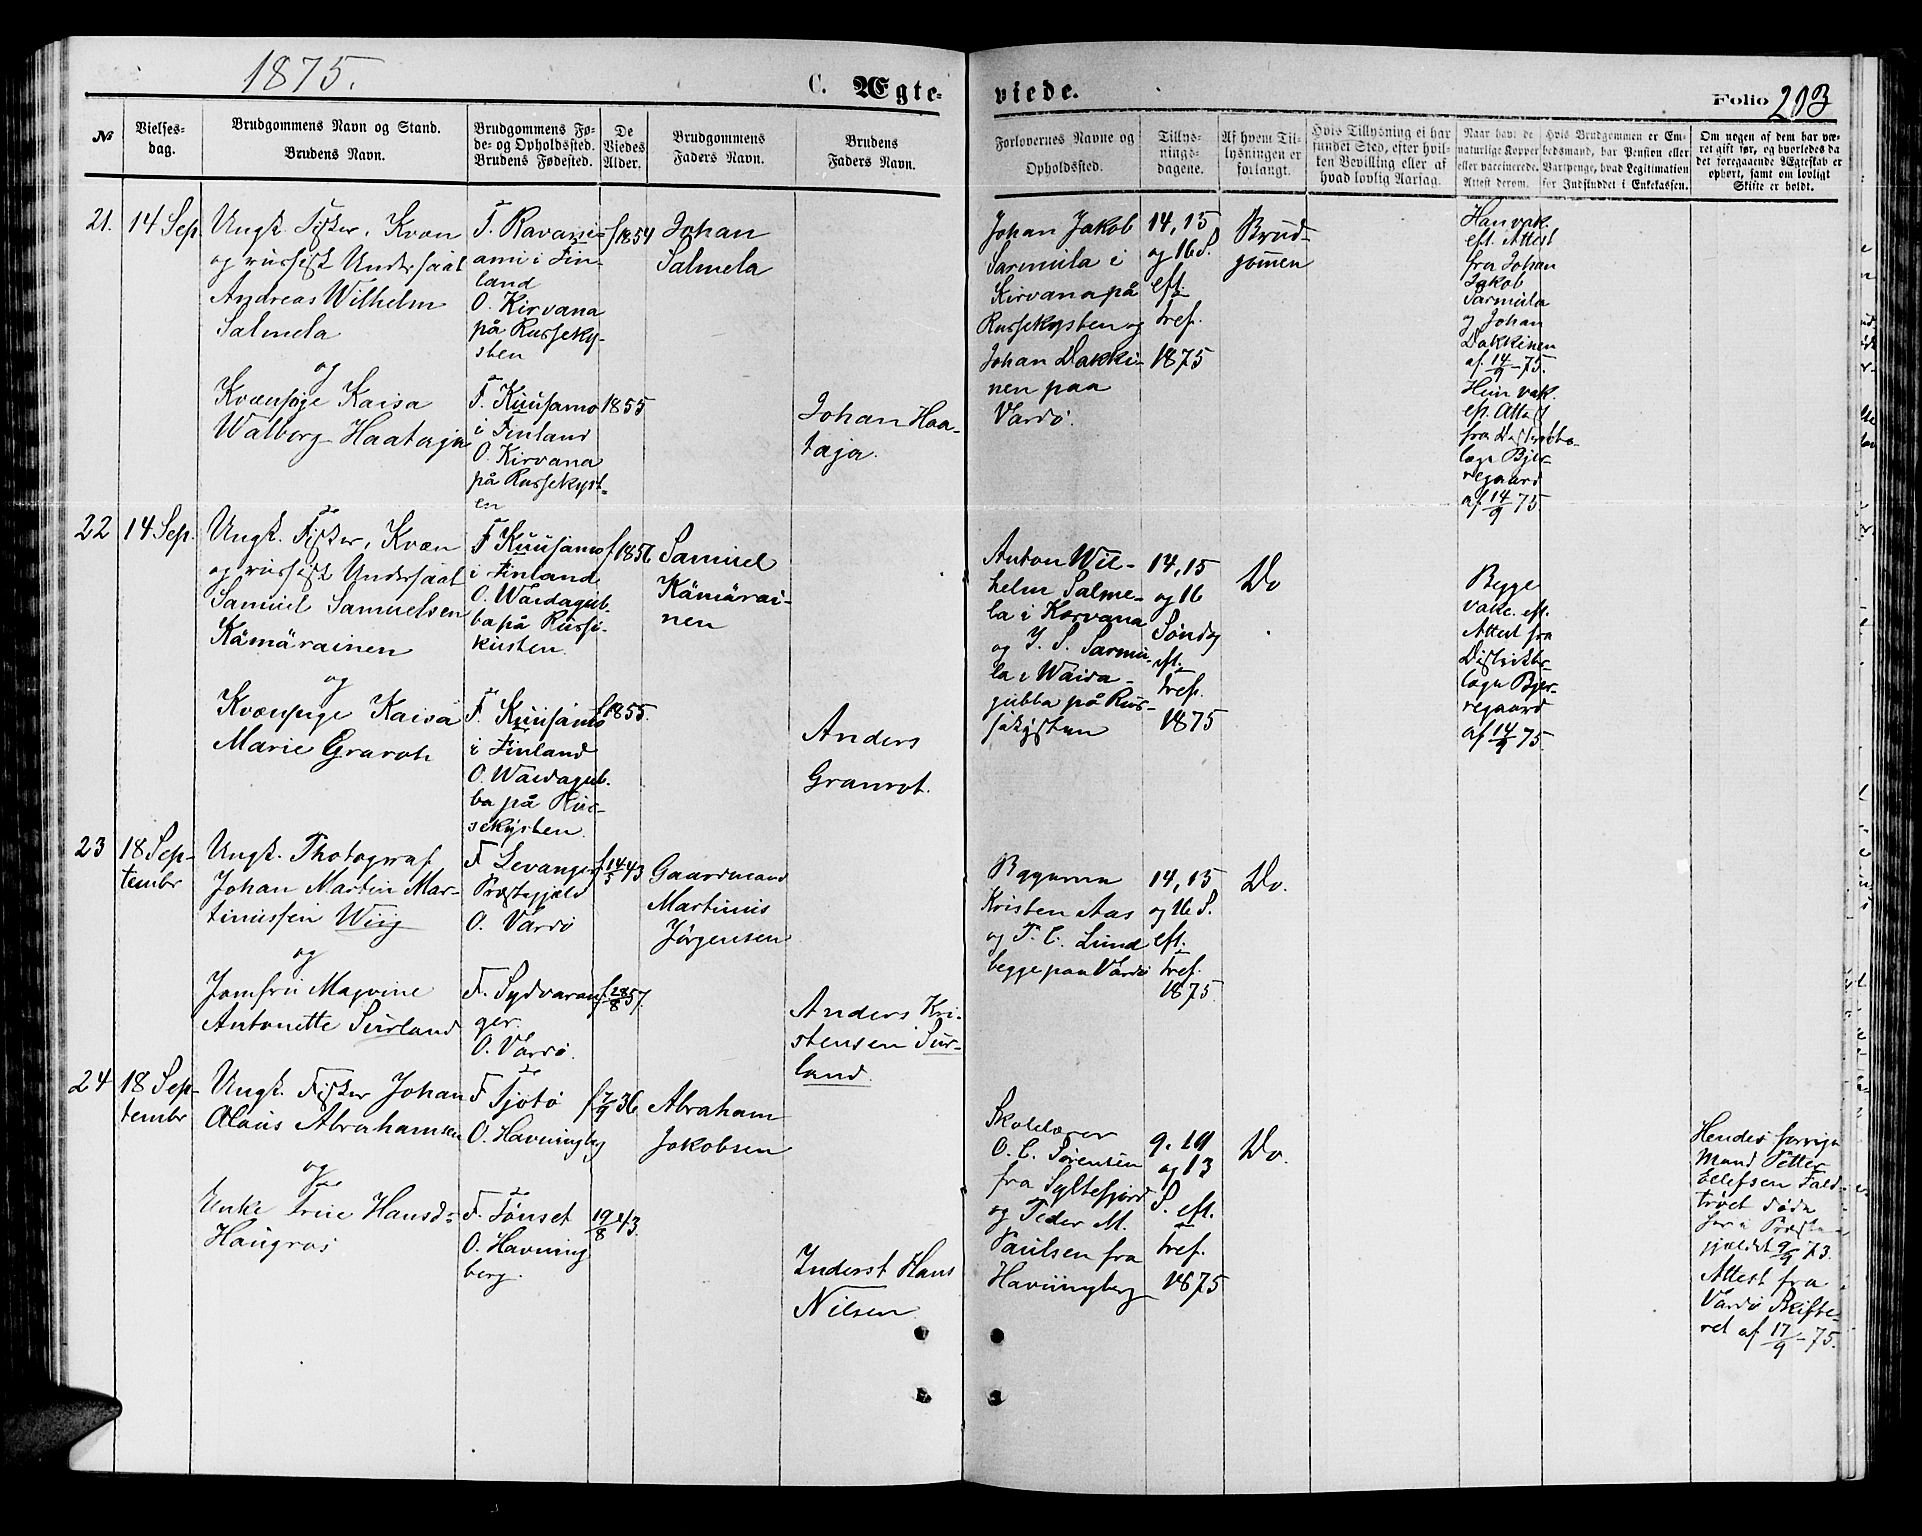 1875.
C. Ægte-
viede.
Folio 203
№
Vielses-
dag.
Brudgommens Navn og Stand.
Brudens Navn.
Brudgommens Fø-
de- og Opholdssted.
Brudens Fødested.
De
Viedes
Alder.
Brudgommens
Faders Navn.
Brudens
Faders Navn.
Forlovernes Navne og
Opholdssted.
Tillys-
nings-
dagene.
Af hvem Til-
lysningen er
forlangt.
Hvis Tillysning ei har
fundet Sted, efter hvil-
ken Bevilling eller af
hvad lovlig Aarsag.
Naar havt de
naturlige Kopper
eller vaccinerede.
Attest derom.
Hvis Brudgommen er Em-
bedsmand, har Pension eller
Vartpenge, hvad Legitimation
for Indskuddet i Enkekassen.
Om nogen af dem har væ-
ret gift før, og hvorledes da
det foregaaende Ægteskab er
ophørt, samt om lovligt
Skifte er holdt.
21.
14 Sep.
Ungk. Fisker, Kvæn
og russisk Undersaat
Andreas Wilhelm
Salmela
og
Kvænpige Kaisa
Walborg Haataja
F. Ravani-
ami i Fin-
land
O. Kirvana
på Russeky-
sten
F. Kuusamo
i Finland
O. Kirvana
på Russekyst-
en
f 1854
1855
Johan
Salmela
Johan Haa-
taja.
Johan Jakob
Sarmula i
Kirvana på
Russekysten og
Johan Dakki-
nen paa
Vardø.
14, 15
og 16 S.
eft.
tref.
1875
Brud-
gomen
Han vak.
eft. Attest
fra Johan
Jakob
Sarmula
og Johan
Dakkinen
af 14/9-75.
Hun vak.
ef. Att.
fra Distrikts-
læge Bjer-
regaard
af 14/9 75
22
14 Sep.
Ungk. Fisker, Kvæn
og russisk Undersaat
Samuel Samuelsen
Kämäräinen
og
Kvænpige Kaisa
Marie Granrot
F Kuusamo
i Finland
O. Waidagub-
ba på Russe-
kusten.
F. Kuusamo
i Finland
O. Waidagub-
ba på Rus-
sekysten.
f 1856
f 1855.
Samuel
Kämärai-
nen
Anders
Granrot.
Anton Wil-
helm Salme-
la i Korvana
og J. S. Sarmu-
la i Waida-
gubba på Rus-
sekysten
14, 15
og 16
Søndag
eft.
tref.
1875
Do
Begge
vakc. eft.
Attest fra
Distrikts-
læge Bjer-
regaard
af 14/9 75.
23
18 Sep-
tembr
Ungk. Photograf
Johan Martin Mar-
tinussen Wiig
og
Jomfru Magvine
Antonette Surland
F Levanger
Præstegjæld
O. Vardø
F. Sydvaran-
ger.
O. Vardø.
f 14/5 43
f 28/8 57.
Gaardmand
Martinus
Jørgensen
Anders Kri-
stensen Sur-
land.
Kristen Aas
og T. C. Lund
begge paa Vardø
14, 15
og 16 S.
eft.
tref.
1875.
Do.
24
18 Sep-
tembr
Ungk. Fisker Johan
Olaus Abrahamsen
og
Enke Trine Hansd-
Haugros
F Tjøtø
O. Havningbg
F. Tønset
O. Havning
berg.
f 7/9 36
19/8 43.
Abraham
Jakobsen
Inderst Hans
Nilsen
Skolelærer
O. C. Sørensen
fra Syltefjord
og Peder M.
Paulsen fra
Havningberg
9. 10
og 13
S. eft.
tref.
1875
Do.
Hendes forrige
Mand Petter
Ellefsen Fald-
trøet døde
her i Præste-
gjældet 9/9 73.
Attest fra
Vardø Skifte-
ret af 17/9-75.